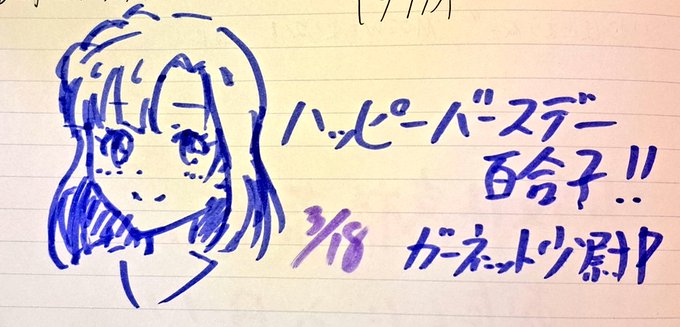 ハッピーバースデー
百合子!!
3/18
ガーネット少尉P